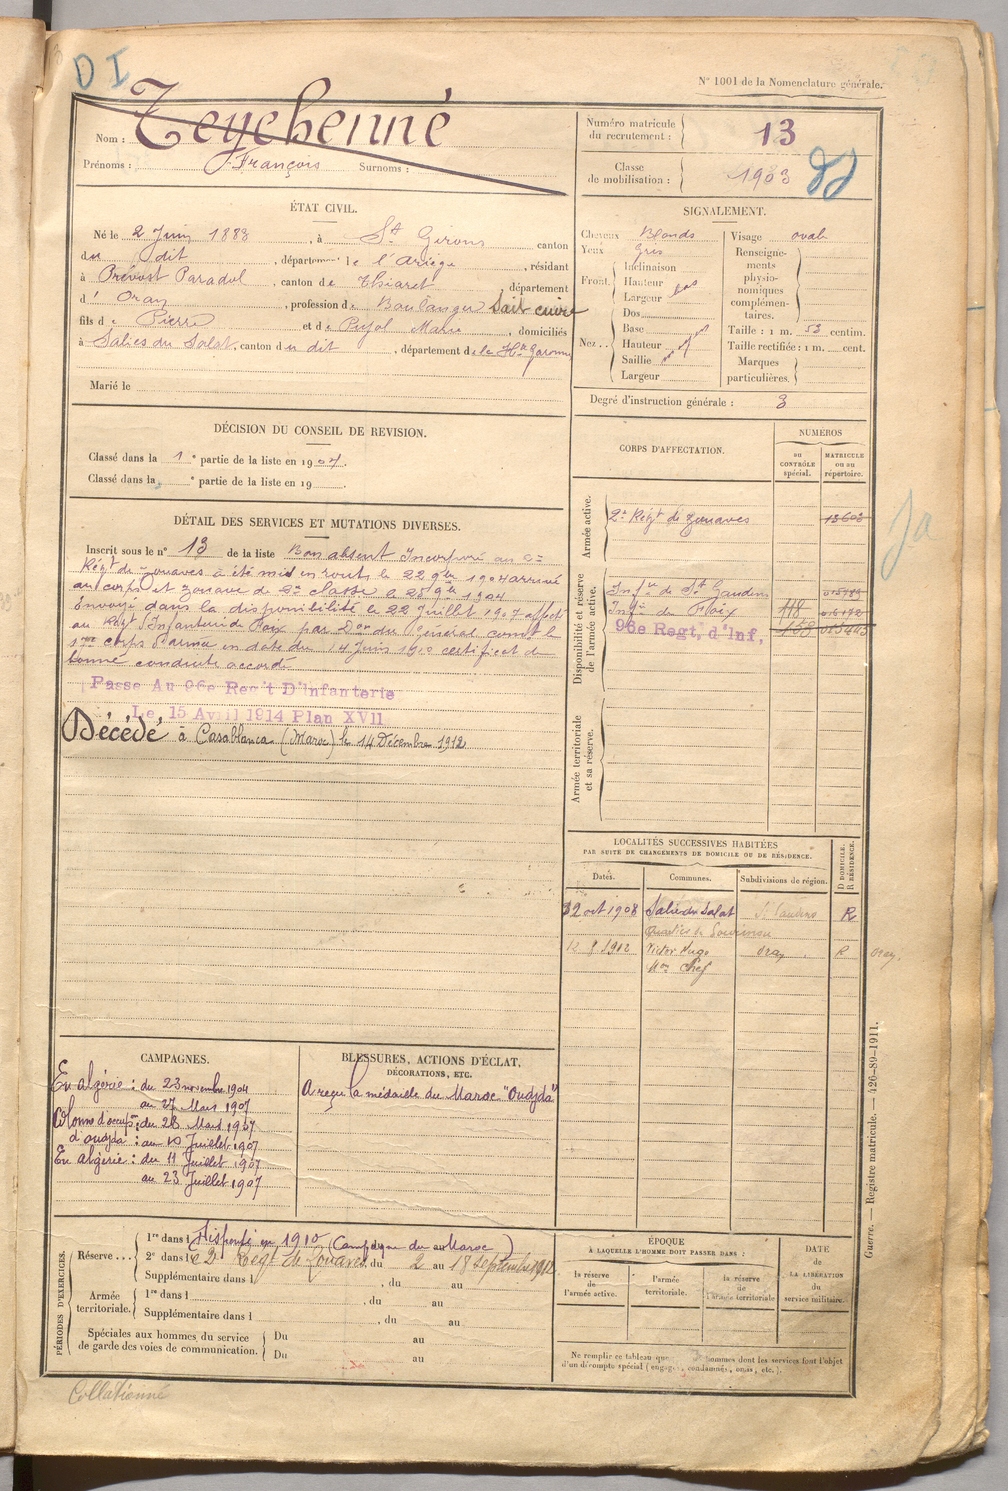 D I
N° 1001 de la Nomenclature générale.
Nom : Teychenné
Prénoms : François Surnoms :
Numéro matricule du recrutement : 13
Classe de mobilisation : 1903
ÉTAT CIVIL.
Né le 2 Juin 1883, à St Girons canton
du dit, département de l'Ariège, résidant
à Prévost Paradol, canton de Thiaret, département
d'Oran, profession de Boulanger Sait cuire
fils de Pierre et de Pujol Marie, domiciliés
à Salies du Salat, canton du dit, département de la Hte Garonne
Marié le
SIGNALEMENT.
Cheveux Blonds
Yeux gris
Front. Inclinaison
Hauteur
Largeur
Nez.. Dos
Base
Hauteur
Saillie
Largeur
Visage ovale
Renseignements physionomiques complémentaires.
Taille : 1 m. 53 centim.
Taille rectifiée : 1 m. cent.
Marques particulières.
Degré d'instruction générale : 3
DÉCISION DU CONSEIL DE REVISION.
Classé dans la 1e partie de la liste en 1904.
Classé dans la e partie de la liste en 19
CORPS D'AFFECTATION.
NUMÉROS
au CONTRÔLE spécial.
MATRICULE ou au répertoire.
Armée active.
2e Régt de zouaves 13603
Disponibilité et réserve de l'armée active.
Infie de St Gaudens
Infie de Foix 118
96e Regt, d'Inf, 158
Armée territoriale et sa réserve.
DÉTAIL DES SERVICES ET MUTATIONS DIVERSES.
Inscrit sous le n° 13 de la liste Bon absent Incorporé au 2e
Régt de zouaves à été mis en route le 22 9bre 1904 arrivé
au corps et zouave de 2e classe le 23 9bre 1904
Envoyé dans la disponibilité le 22 Juillet 1907 affecté
au Régt Infanterie de Foix par Don du Général comt le
corps d'armée en date du 14 Juin 1910 certificat de
bonne conduite accordé
Passe Au 96e Reg't D'Infanterie
Le 15 Avril 1914 Plan XVII
Décédé à Casablanca (Maroc) le 14 Décembre 1912
LOCALITÉS SUCCESSIVES HABITÉES
PAR SUITE DE CHANGEMENTS DE DOMICILE OU DE RÉSIDENCE.
Dates. Communes. Subdivisions de région. D DOMICILE. R RÉSIDENCE.
oct 1908 Salies du Salat St Gaudens R
1912 Victor Hugo Oran R
Oran.
CAMPAGNES.
En algérie : du 23 novembre 1904
au 27 Mars 1907
Colonne d'occupon d'oudjda : du 28 Mars 1907
au 10 Juillet 1907
En algérie : du 11 Juillet 1907
au 23 Juillet 1907
BLESSURES, ACTIONS D'ÉCLAT,
DÉCORATIONS, ETC.
A reçu la médaille du Maroc "Oudjda"
PÉRIODES D'EXERCICES.
Réserve... 1re dans l Dispensé en 1910 (Campagne du au Maroc)
2e dans le 2 Regt de Zouaves, du 2 au 18 septembre 1912
Supplémentaire dans l , du au
Armée territoriale. 1re dans l , du au
Supplémentaire dans l , du au
Spéciales aux hommes du service de garde des voies de communication. Du au
Du au
ÉPOQUE
À LAQUELLE L'HOMME DOIT PASSER DANS :
la réserve de l'armée active.
l'armée territoriale.
la réserve de l'armée territoriale
DATE de LA LIBÉRATION du service militaire.
Ne remplir ce tableau que hommes dont les services font l'objet
d'un décompte spécial (engagés, condamnés, omis, etc.).
Guerre. — Registre matricule. — 426-89-1911.
Collationné